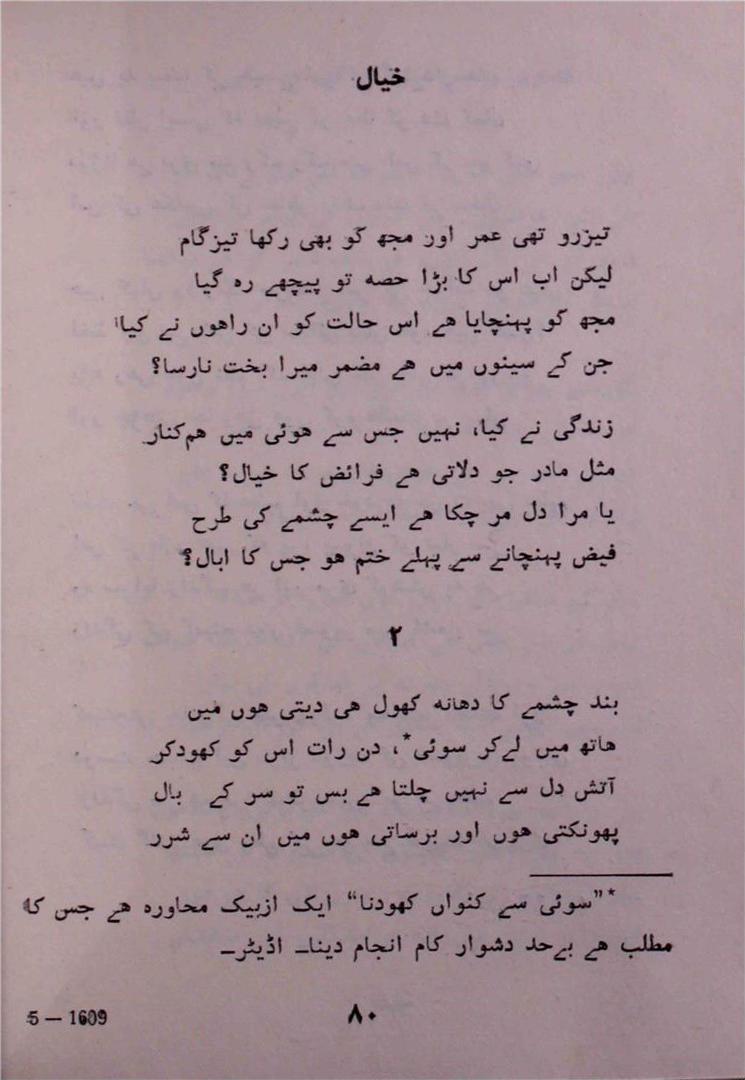 خیال
تیزرو تھی عمر اور مجھ کو بھی رکھا تیزگام
لیکن اب اس کا بڑا حصہ تو پیچھے رہ گیا
مجھ کو پہنچایا ھے اس حالت کو ان راھوں نے کیا
جن کے سینوں میں ھے مضمر میرا بخت نارسا؟
زندگی نے کیا، نہیں جس سے ھوئی میں ھم‌کنار
مثل مادر جو دلاتی ھے فرائض کا خیال؟
یا مرا دل مر چکا ھے ایسے چشمے کی طرح
فیض پہنچانے سے پہلے ختم ھو جس کا ابال؟
۲
بند چشمے کا دھانہ کھول ھی دیتی ھوں میں
ھاتھ میں لے‌کر سوئی*، دن رات اس کو کھودکر
آتش دل سے نہیں چلتا ھے بس تو سر کے بال
پھونکتی ھوں اور برساتی ھوں میں ان سے شرر
*”سوئی سے کنواں کھودنا“ ایک ازبیک محاورہ ھے جس کا
مطلب ھے بے‌حد دشوار کام انجام دینا۔ اڈیٹر۔
5 — 1609
۸۰